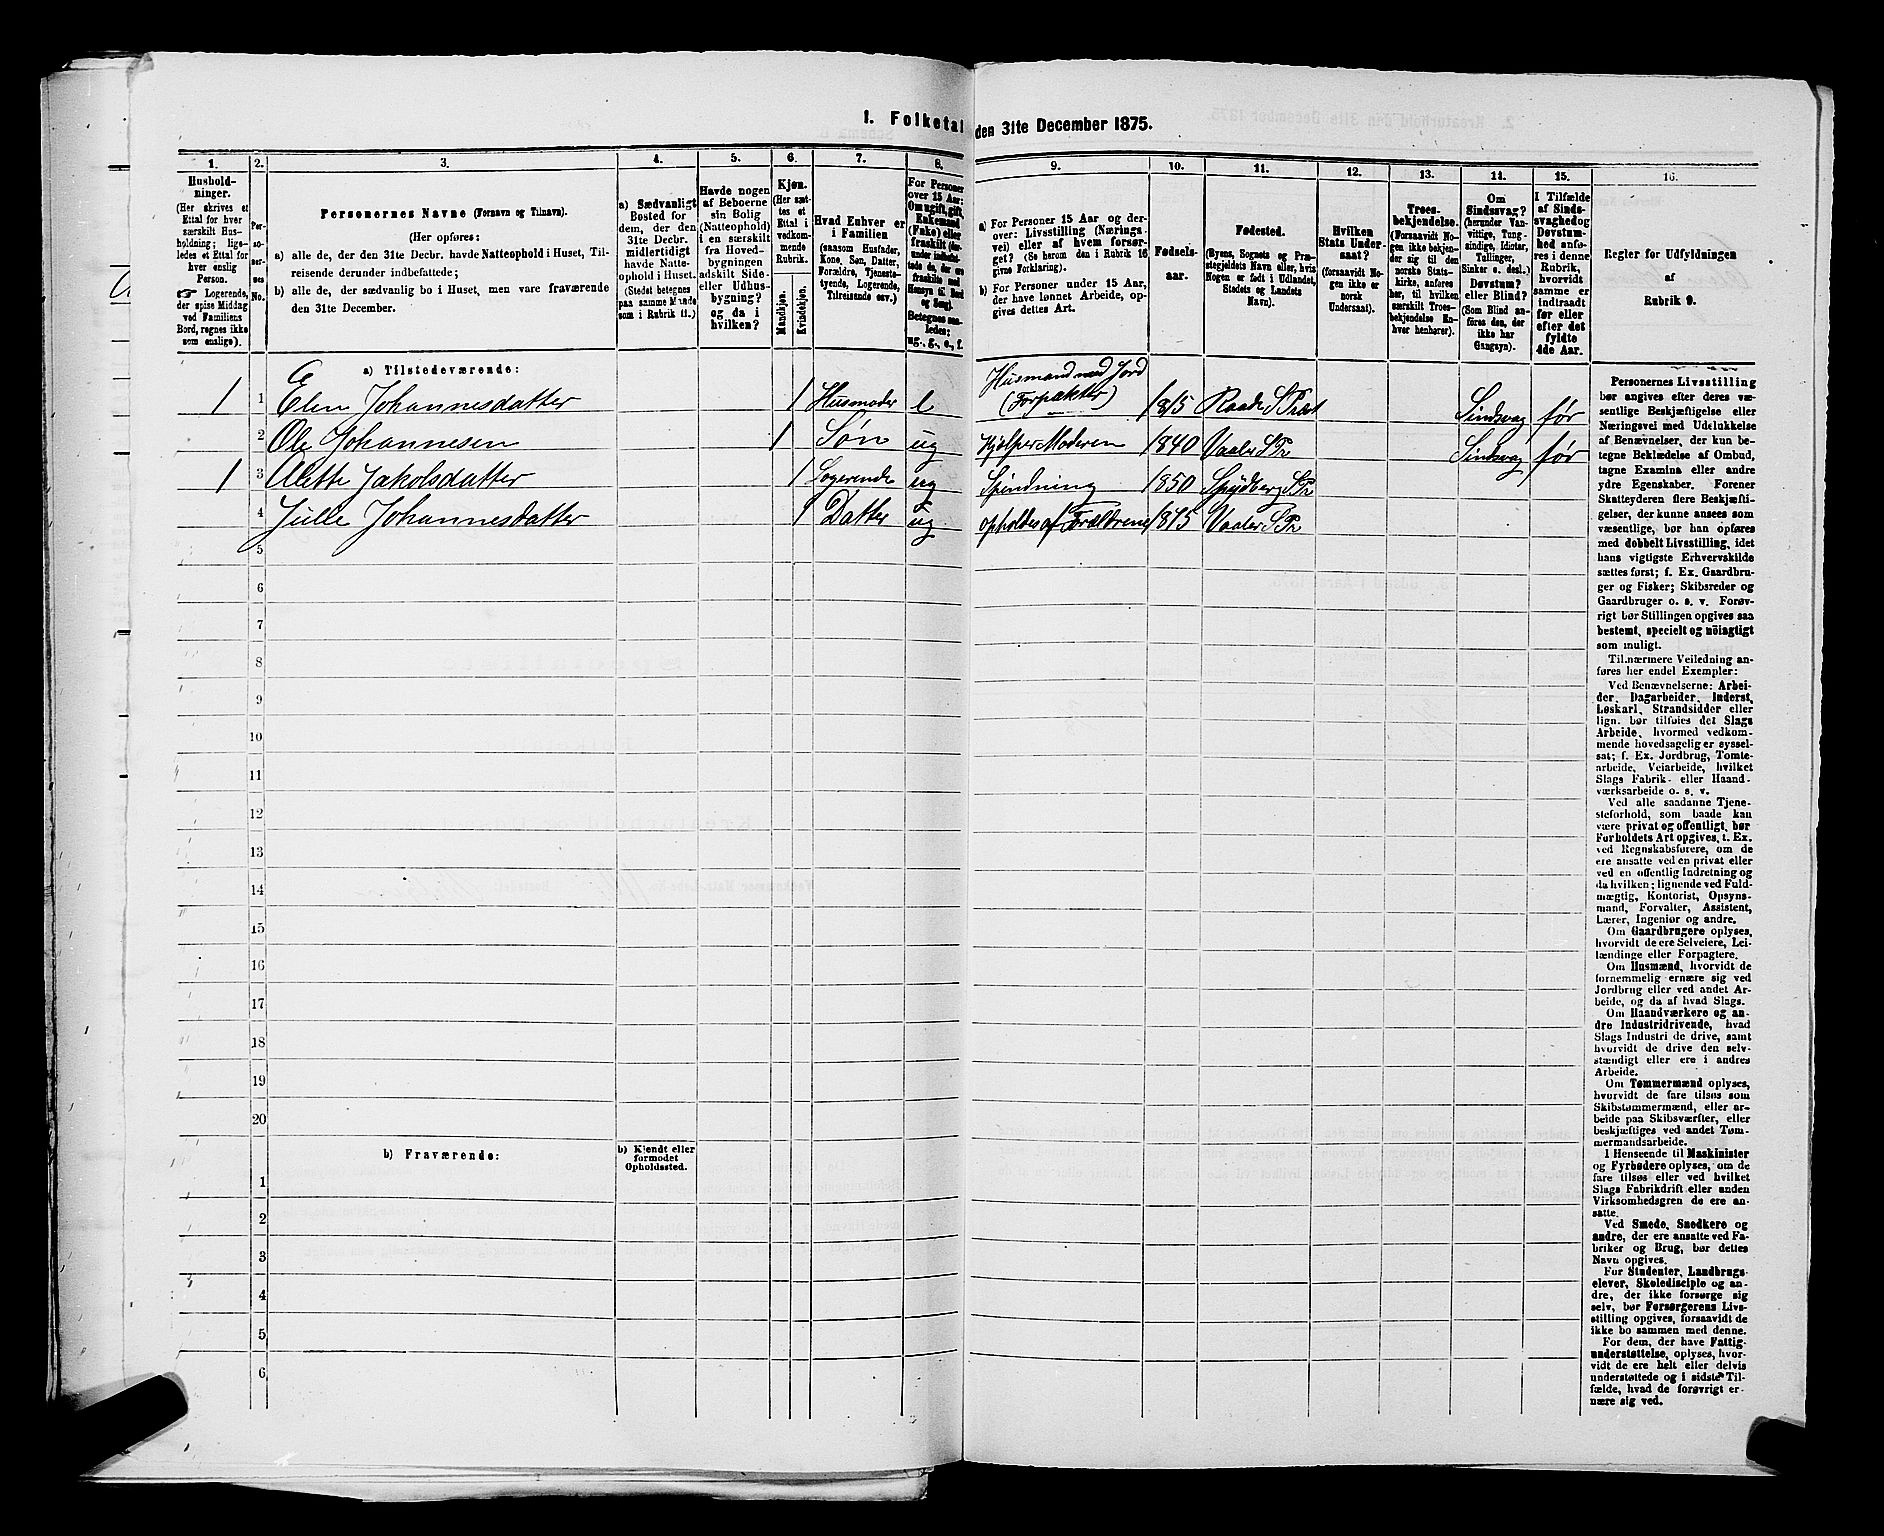 1. Folketal den 31te December 1875.
1. 2. 3. 4. 5. 6. 7. 8. 9. 10. 11. 12. 13. 14. 15. 16.
Husholdninger.
(Her skrives et
Ettal for hver
særskilt Husholdning; ligeledes et Ettal for
hver enslig
Person.
Logerende,
der spise Middag
ved Familiens
Bord, regnes ikke
som enslige).
Personernes No.
Personernes Navne (Fornavn og Tilnavn).
(Her opføres:
a) alle de, der den 31te Decbr. havde Natteophold i Huset, Tilreisende derunder indbefattede;
b) alle de, der sædvanlig bo i Huset, men vare fraværende
den 31te December.
a) Sædvanligt
Bosted for
dem, der den
31te Decbr.
midlertidigt
havde Natteophold i Huset.
(Stedet betegnes
paa samme Maade
som i Rubrik 11.)
Havde nogen
af Beboerne
sin Bolig
(Natteophold)
i en særskilt
fra Hovedbygningen
adskilt Side-
eller Udhusbygning?
og da i
hvilken?
Kjøn.
(Her sættes et
Ettal i
vedkommende
Rubrik.
Mandkjøn.
Kvindekjøn.
Hvad Enhver er
i Familien
(saasom Husfader,
Kone, Søn, Datter,
Forældre, Tjenestetyende, Logerende,
Tilreisende osv.)
For Personer
over 15 Aar:
Om ugift, gift,
Enkemand
(Enke) eller
fraskilt (derunder indbefattede de, der ere
fraskilte med
Hensyn til Bord
og Seng).
Betegnes saaledes:
ug., g., e., f.
a) For Personer 15 Aar og derover: Livsstilling (Næringsvei) eller af hvem forsørget? (Se herom den i Rubrik 16
givne Forklaring).
b) For Personer under 15 Aar,
der have lønnet Arbeide, opgives dettes Art.
Fødselsaar.
Fødested.
(Byens, Sognets og Præstegjeldets Navn eller, hvis
Nogen er født i Udlandet,
Stedets og Landets
Navn).
Hvilken
Stats Undersaat?
(forsaavidt Nogen ikke er
norsk
Undersaat).
Troesbekjendelse.
(Forsaavidt Nogen ikke bekjender sig til den
norske Statskirke, anføres
her, til hvilken
særskilt Troesbekjendelse Enhver henhører).
Om
Sindssvag?
(herunder Vanvittige, Tungsindige, Idioter,
Tullinger,
Sinker o. desl.)
Døvstum?
eller Blind?
(Som Blind anføres den, der
ikke har
Gangsyn).
I Tilfælde
af Sindssvaghed og
Døvstumhed anføres i denne
Rubrik,
hvorvidt
samme er
indtraadt
før eller
efter det
fyldte
4de Aar.
Regler for Udfyldningen
af
Rubrik 9.
a) Tilstedeværende:
1 1 Elen Johannesdatter 1 Husmoder e Husmand med Jord (Forpakter) 1815 Raade S Præst Sindsvag før
2 Ole Johannesen 1 Søn ug Hjelper Moderen 1840 Vaaler S Pr Sindsvag før
1 3 Alette Jakobsdatter 1 Logerende ug Spindning 1850 Spydberg S Pr
4 Julle Johannesdatter 1 Datter ug opholdes af Forældrene 1875 Vaaler S Pr
5
6
7
8
9
10
11
12
13
14
15
16
17
18
19
20
b) Fraværende:
b) Kjendt eller
formodet
Opholdssted.
1
2
3
4
5
6
Personernes Livsstilling
bør angives efter deres væsentlige Beskjæftigelse eller
Næringsvei med Udelukkelse
af Benævnelser, der kun betegne Beklædelse af Ombud,
tagne Examina eller andre
ydre Egenskaber. Forener
Skatteyderen flere Beskjæftigelser, der kunne ansees som
væsentlige, bør han opføres
med dobbelt Livsstilling, idet
hans vigtigste Erhvervskilde
sættes først; f. Ex. Gaardbruger og Fisker; Skibsreder og
Gaardbruger o. s. v. Forøvrigt bør Stillingen opgives saa
bestemt, specielt og nöiagtigt
som muligt.
Til nærmere Veiledning anføres her endel Exempler:
Ved Benævnelserne: Arbeider, Dagarbeider, Inderst,
Løskarl, Strandsidder eller
lign. bør tilføies det Slags
Arbeide, hvormed vedkommende hovedsagelig er sysselsat; f. Ex. Jordbrug, Tomtearbeide, Veiarbeide, hvilket
Slags Fabrik- eller Haandværksarbeide o. s. v.
Ved alle saadanne Tjenesteforhold, som baade kan
være privat og offentligt, bør
Forholdets Art opgives, t. Ex.
ved Regnskabsførere, om de
ere ansatte ved en privat eller
ved en offentlig Indretning og
da hvilken; lignende ved Fuldmægtig, Kontorist, Opsynsmand, Forvalter, Assistent,
Lærer, Ingeniør og andre.
Om Gaardbrugere oplyses,
hvorvidt de ere Selveiere, Leilændinge eller Forpagtere.
Om Husmænd, hvorvidt de
fornemmelig ernære sig ved
Jordbrug eller ved andet Arbeide, og da af hvad Slags.
Om Haandværkere og andre Industridrivende, hvad
Slags Industri de drive, samt
hvorvidt de drive den selvstændigt eller ere i andres
Arbeide.
Om Tømmermænd oplyses,
hvorvidt de fare tilsøs som
Skibstømmermænd, eller arbeide paa Skibsværfter, eller
beskjæftiges ved andet Tømmermandsarbeide.
I Henseende til Maskinister
og Fyrbødere oplyses, om de
fare tilsøs eller ved hvilket
Slags Fabrikdrift eller anden
Virksomhedsgren de ere ansatte.
Ved Smede, Snedkere og
andre, der ere ansatte ved Fabriker og Brug, bør dettes
Navn opgives.
For Studenter, Landbrugselever, Skoledisciple og andre, der ikke forsørge sig
selv, bør Forsørgerens Livsstilling opgives, forsaavidt de
ikke bo sammen med denne.
For dem, der have Fattigunderstøttelse, oplyses, hvorvidt de ere helt eller delvis
understøttede og i sidste Tilfælde, hvad de forøvrigt ernære sig ved.